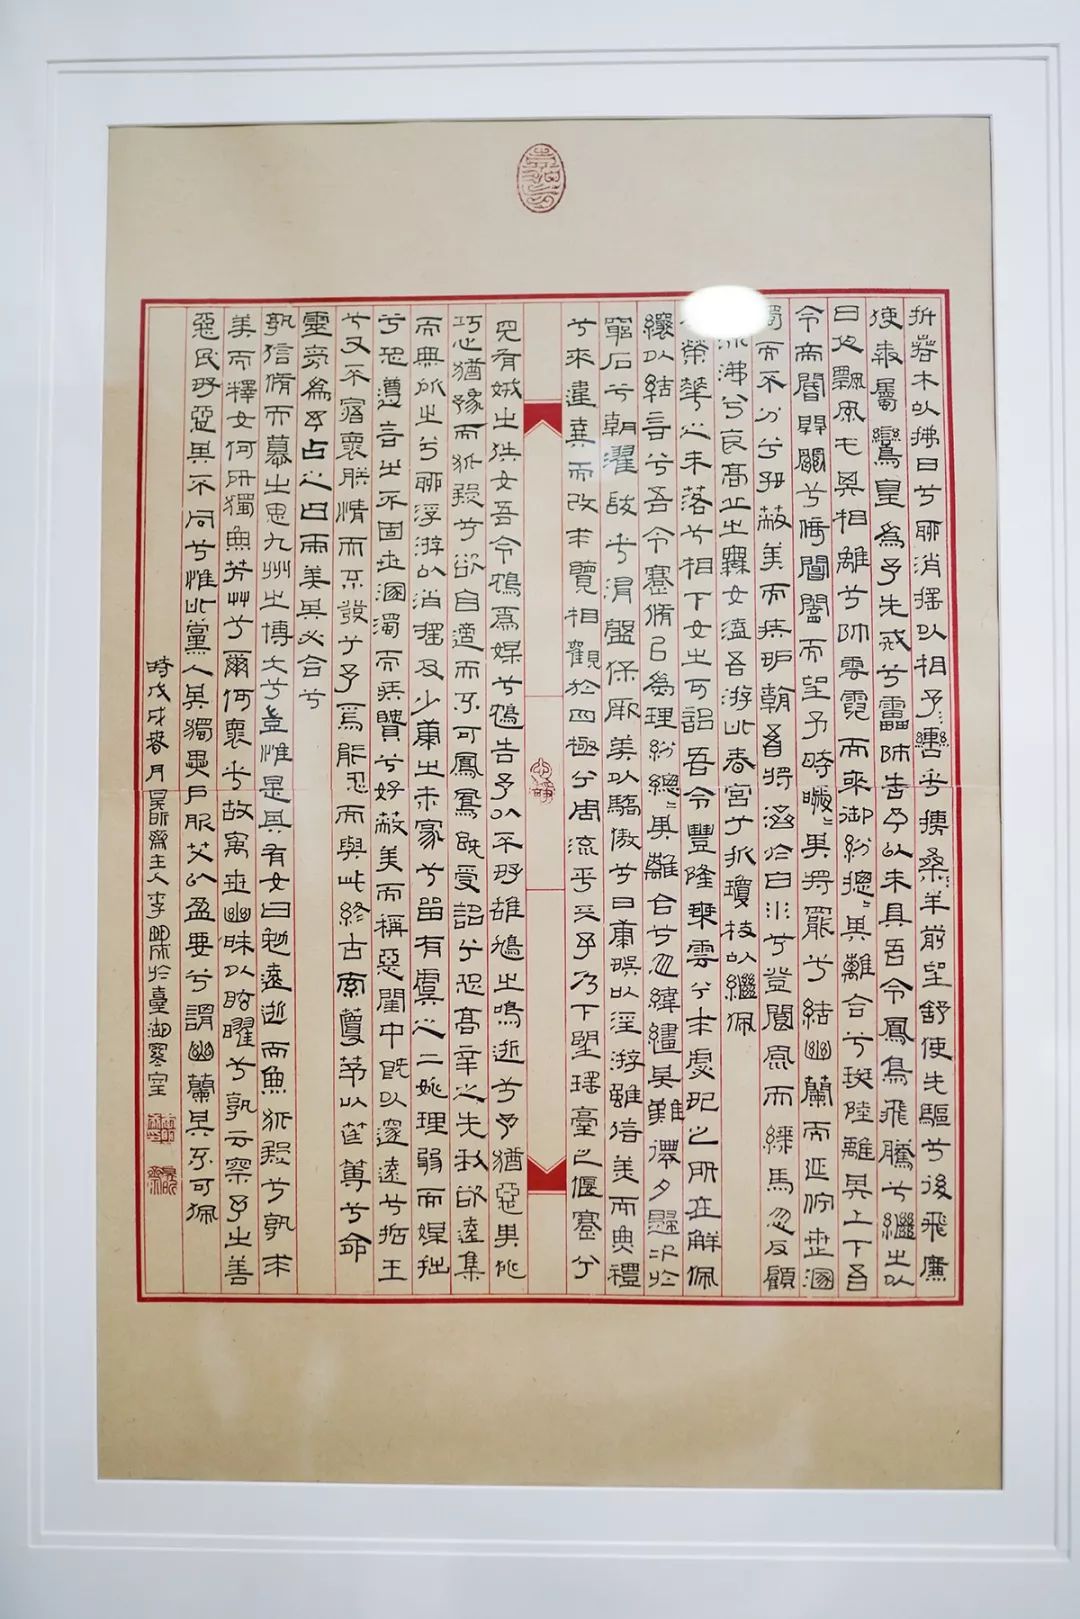 折若木以拂日兮聊消搖以相予轡乎榑桑羊前望舒使先驅兮後飛廉
使奔屬鸞皇為予先戒兮靁師告予以未具吾令鳳鳥飛騰兮繼之以
日夜飄風屯其相離兮帥雲霓而來御紛總〻其離合兮斑陸離其上下吾
令帝閽開關兮倚閶闔而望予時曖〻其將罷兮結幽蘭而延佇世溷
濁而不分兮好蔽美而疾妒朝吾將濟於白水兮登閬風而緤馬忽反顧
流涕兮哀高丘之無女溘吾游此春宮兮折瓊枝以繼佩
榮華之未落兮相下女之可詒吾令豐隆乘雲兮求虙妃之所在解佩
纕以結言兮吾令蹇脩以為理紛總〻其離合兮忽緯繣其難遷夕歸次於
窮石兮朝濯髮乎洧盤保厥美以驕傲兮日康娛以淫游雖信美而無禮
兮來違棄而改求覽相觀於四極兮周流乎天予乃下望瑤臺之偃蹇兮
見有娀之佚女吾令鴆為媒兮鴆告予以不好雄鳩之鳴逝兮予猶惡其佻
巧心猶豫而狐疑兮欲自適而不可鳳鳥既受詒兮恐高辛之先我欲遠集
而無所止兮聊浮游以消搖及少康之未家兮留有虞之二姚理弱而媒拙
兮恐導言之不固世溷濁而疾賢兮好蔽美而稱惡閨中既以邃遠兮哲王
兮又不寤懷朕情而不發兮予焉能忍而與此終古索藑茅以筳篿兮命
靈氛為予占之曰兩美其必合兮
孰信脩而慕之思九州之博大兮豈惟是其有女曰勉遠逝而無狐疑兮孰求
美而釋女何所獨無芳艸兮爾何懷乎故㝢世幽昧以眩曜兮孰云察予之善
惡民好惡其不同兮惟此黨人其獨異戶服艾以盈要兮謂幽蘭其不可佩
時戊戌春月